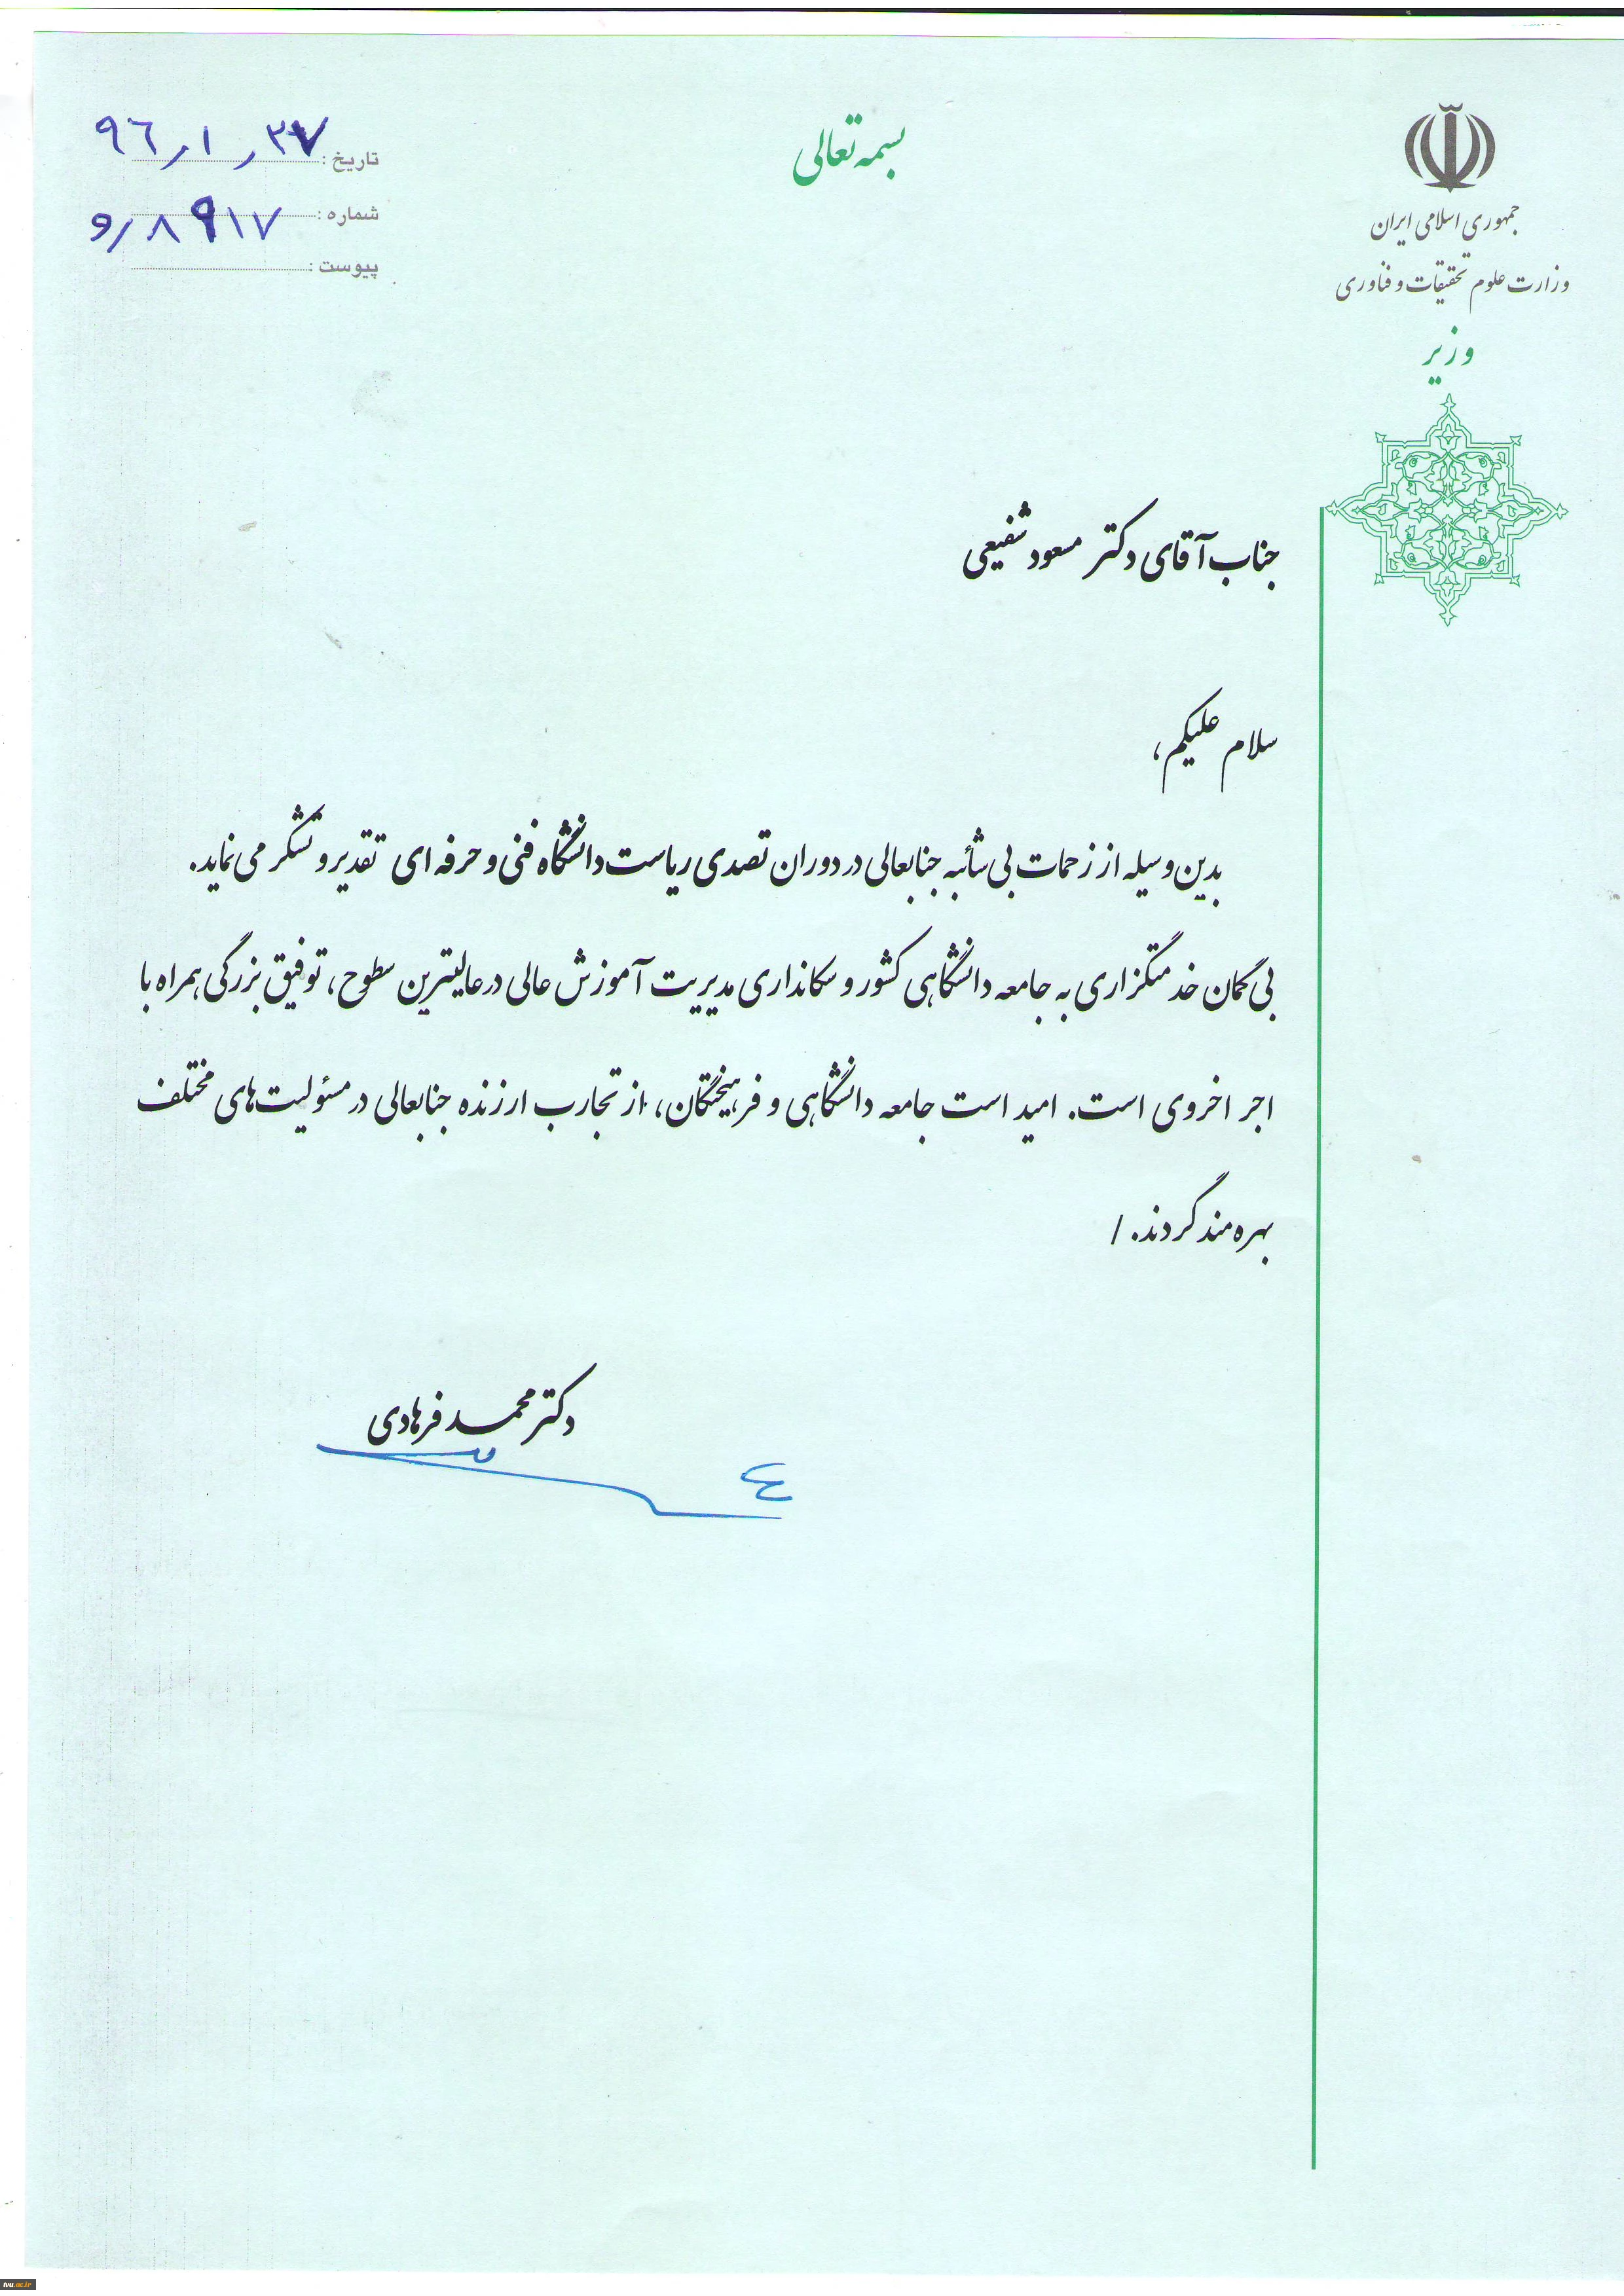 بسمه تعالی
جمهوری اسلامی ایران
وزارت علوم تحقیقات و فناوری
وزیر
تاریخ : ۹۶/۱/۲۷
شماره : و/۸۹۱۷
پیوست :
جناب آقای دکتر مسعود شفیعی
سلام علیکم،
بدین وسیله از زحمات بی شائبه جنابعالی در دوران تصدی ریاست دانشگاه فنی و حرفه ای تقدیر و تشکر می نماید.
بی گمان خدمتگزاری به جامعه دانشگاهی کشور و سکانداری مدیریت آموزش عالی در عالیترین سطوح، توفیق بزرگی همراه با
اجر اخروی است. امید است جامعه دانشگاهی و فرهیختگان، از تجارب ارزنده جنابعالی در مسئولیت های مختلف
بهره مند گردند. /
دکتر محمد فرهادی
tvu.ac.ir